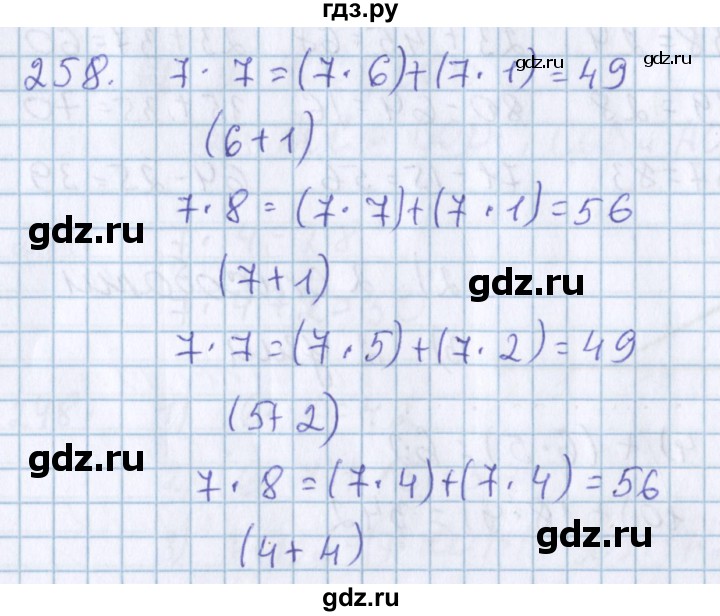 гдз.ру
258. 7 · 7 = (7 · 6) + (7 · 1) = 49
gdz.ru
gdz.ru
(6 + 1)
7 · 8 = (7 · 7) + (7 · 1) = 56
gdz.ru
(7 + 1)
gdz.ru
7 · 7 = (7 · 5) + (7 · 2) = 49
(5 + 2)
gdz.ru
7 · 8 = (7 · 4) + (7 · 4) = 56
(4 + 4)
gdz.ru
gdz.ru